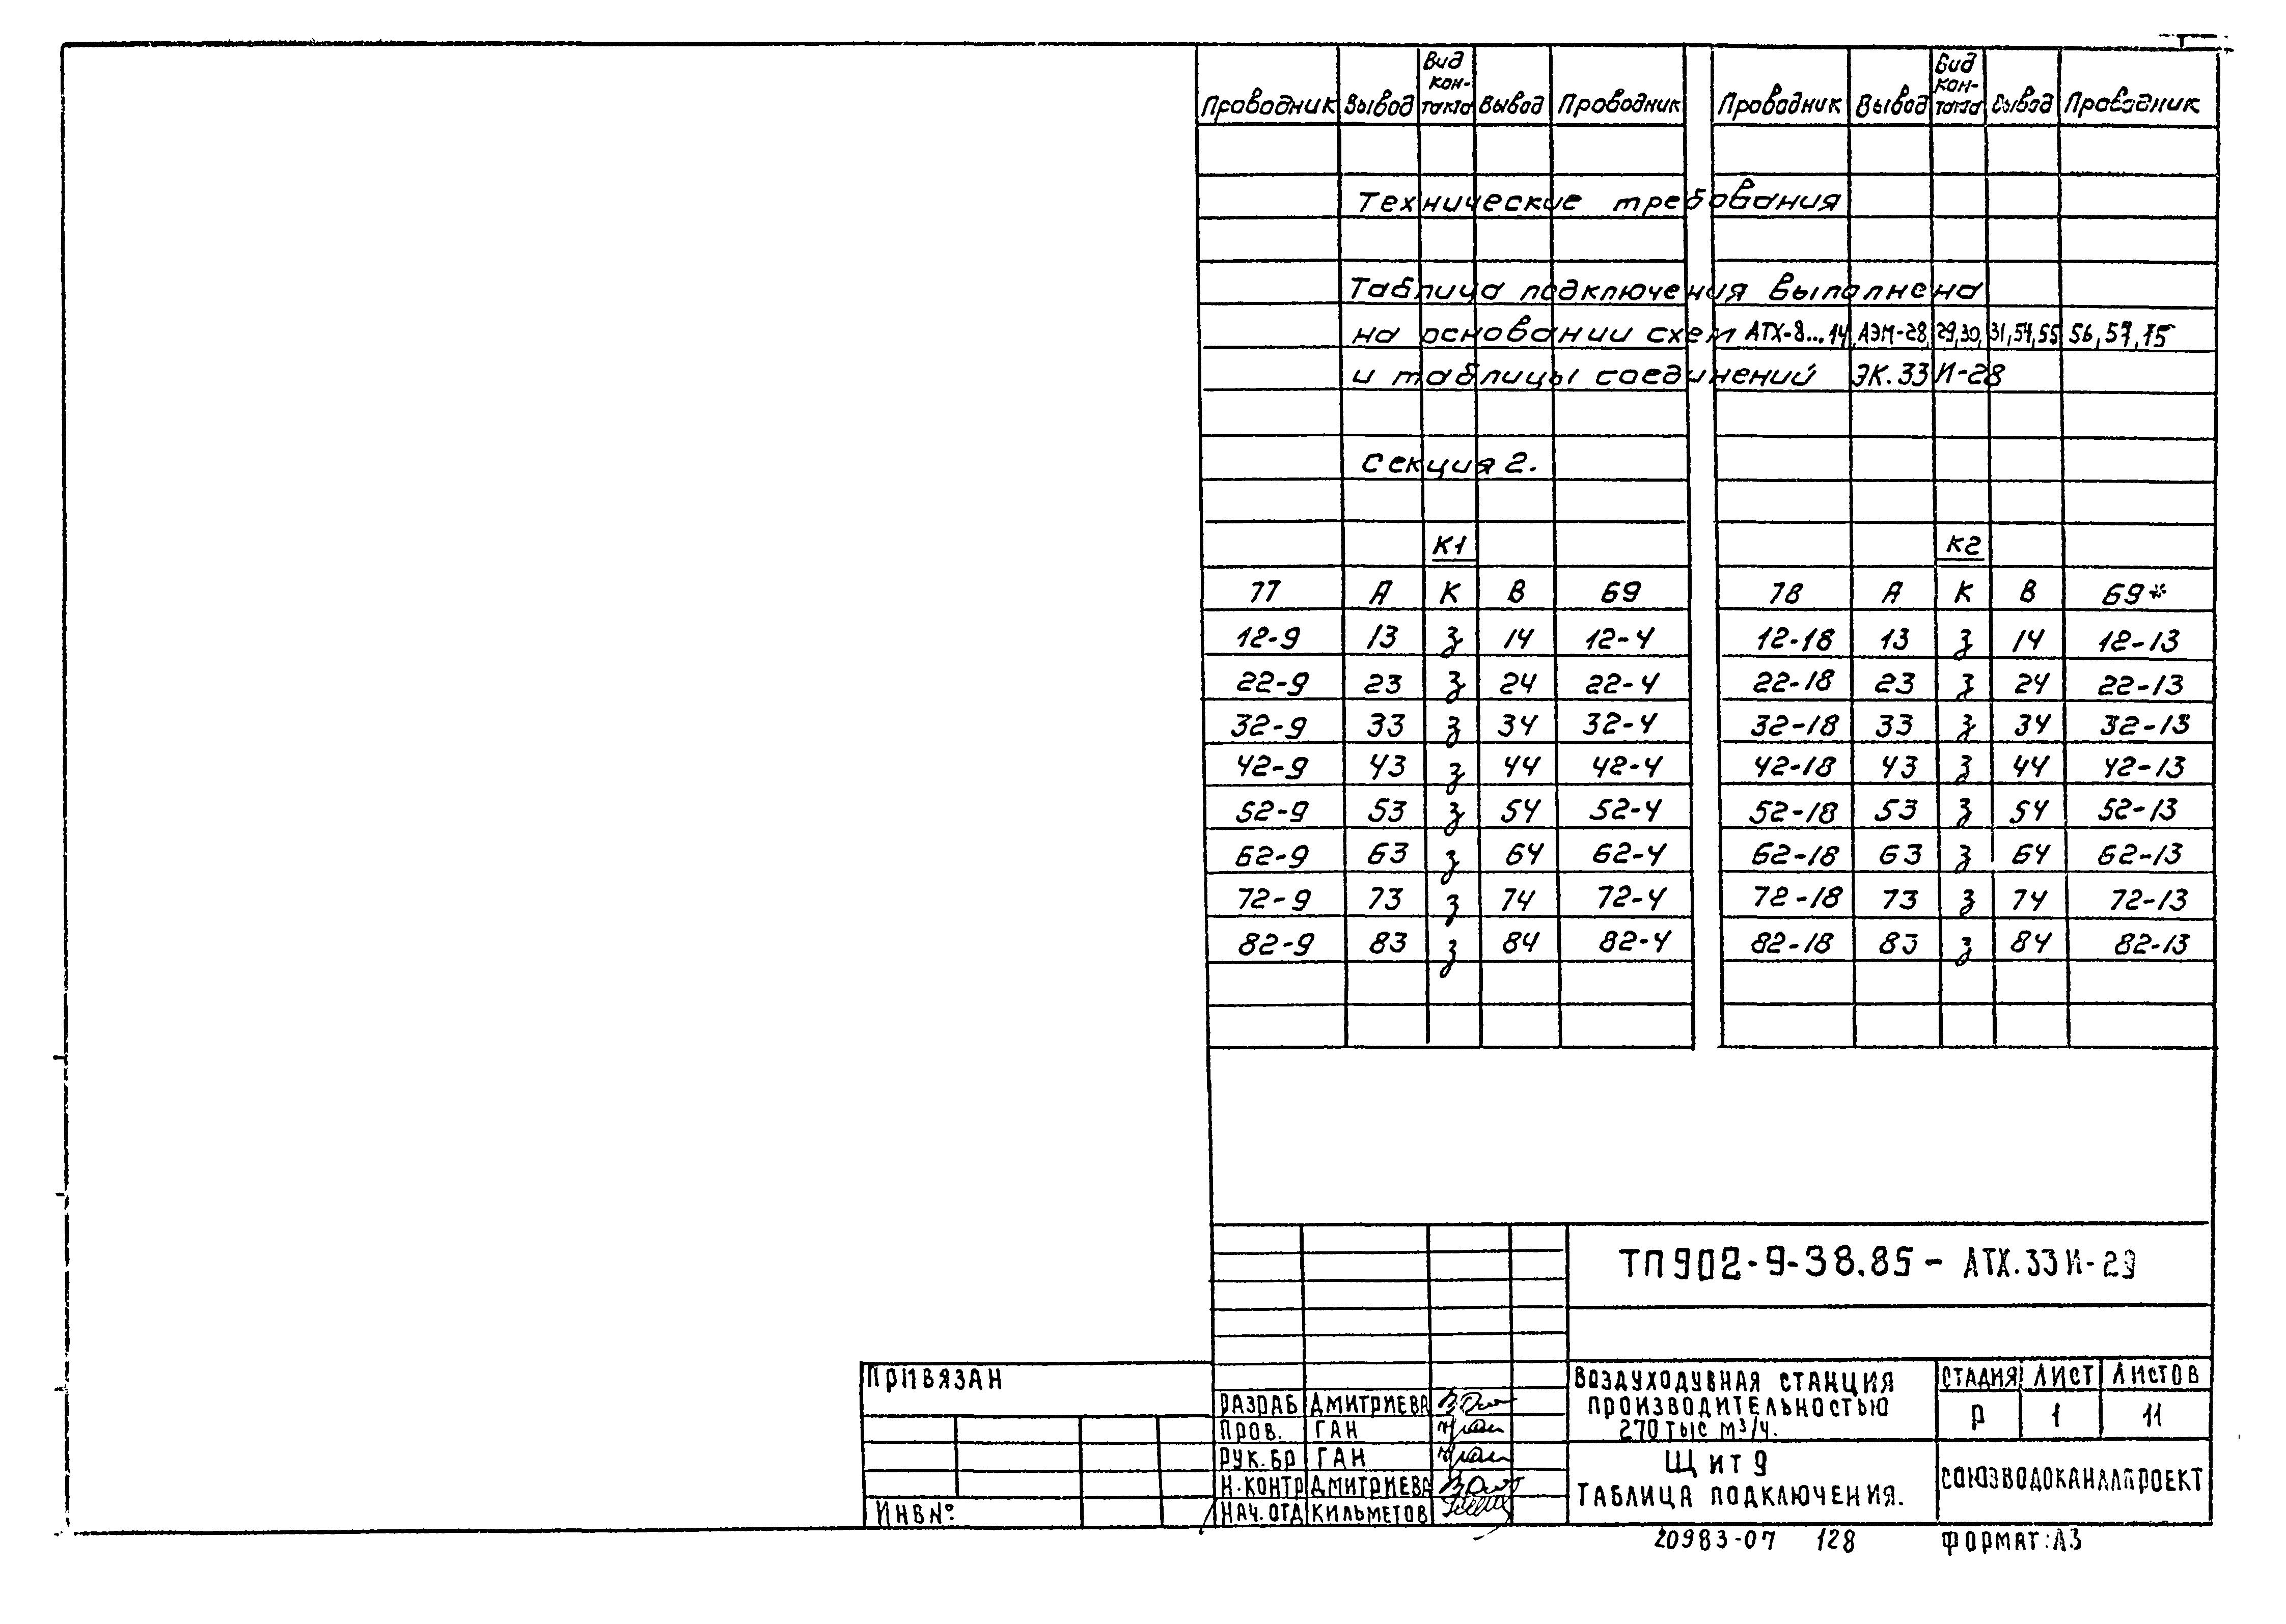 Проводник Вывод Вид кон-такта Вывод Проводник Проводник Вывод Вид кон-такта Вывод Проводник
Технические требования
Таблица подключения выполнена
на основании схем АТХ-8...14, АЭМ-28, 29,30, 31,54,55 56,57,75
и таблицы соединений ЭК.33И-28
Секция 2.
К1 К2
77 А К В 69 78 А К В 69*
12-9 13 з 14 12-4 12-18 13 з 14 12-13
22-9 23 з 24 22-4 22-18 23 з 24 22-13
32-9 33 з 34 32-4 32-18 33 з 34 32-13
42-9 43 з 44 42-4 42-18 43 з 44 42-13
52-9 53 з 54 52-4 52-18 53 з 54 52-13
62-9 63 з 64 62-4 62-18 63 з 64 62-13
72-9 73 з 74 72-4 72-18 73 з 74 72-13
82-9 83 з 84 82-4 82-18 83 з 84 82-13
ТП902-9-38.85 - АТХ.33И-29
ПРИВЯЗАН
ИНВ№
РАЗРАБ ДМИТРИЕВА
ПРОВ. ГАН
РУК.БР ГАН
Н.КОНТР ДМИТРИЕВА
НАЧ.ОТД КИЛЬМЕТОВ
ВОЗДУХОДУВНАЯ СТАНЦИЯ
ПРОИЗВОДИТЕЛЬНОСТЬЮ
270 ТЫС М³/Ч.
ЩИТ 9
ТАБЛИЦА ПОДКЛЮЧЕНИЯ.
СТАДИЯ ЛИСТ ЛИСТОВ
Р 1 11
СОЮЗВОДОКАНАЛПРОЕКТ
20983-07 128 ФОРМАТ:А3